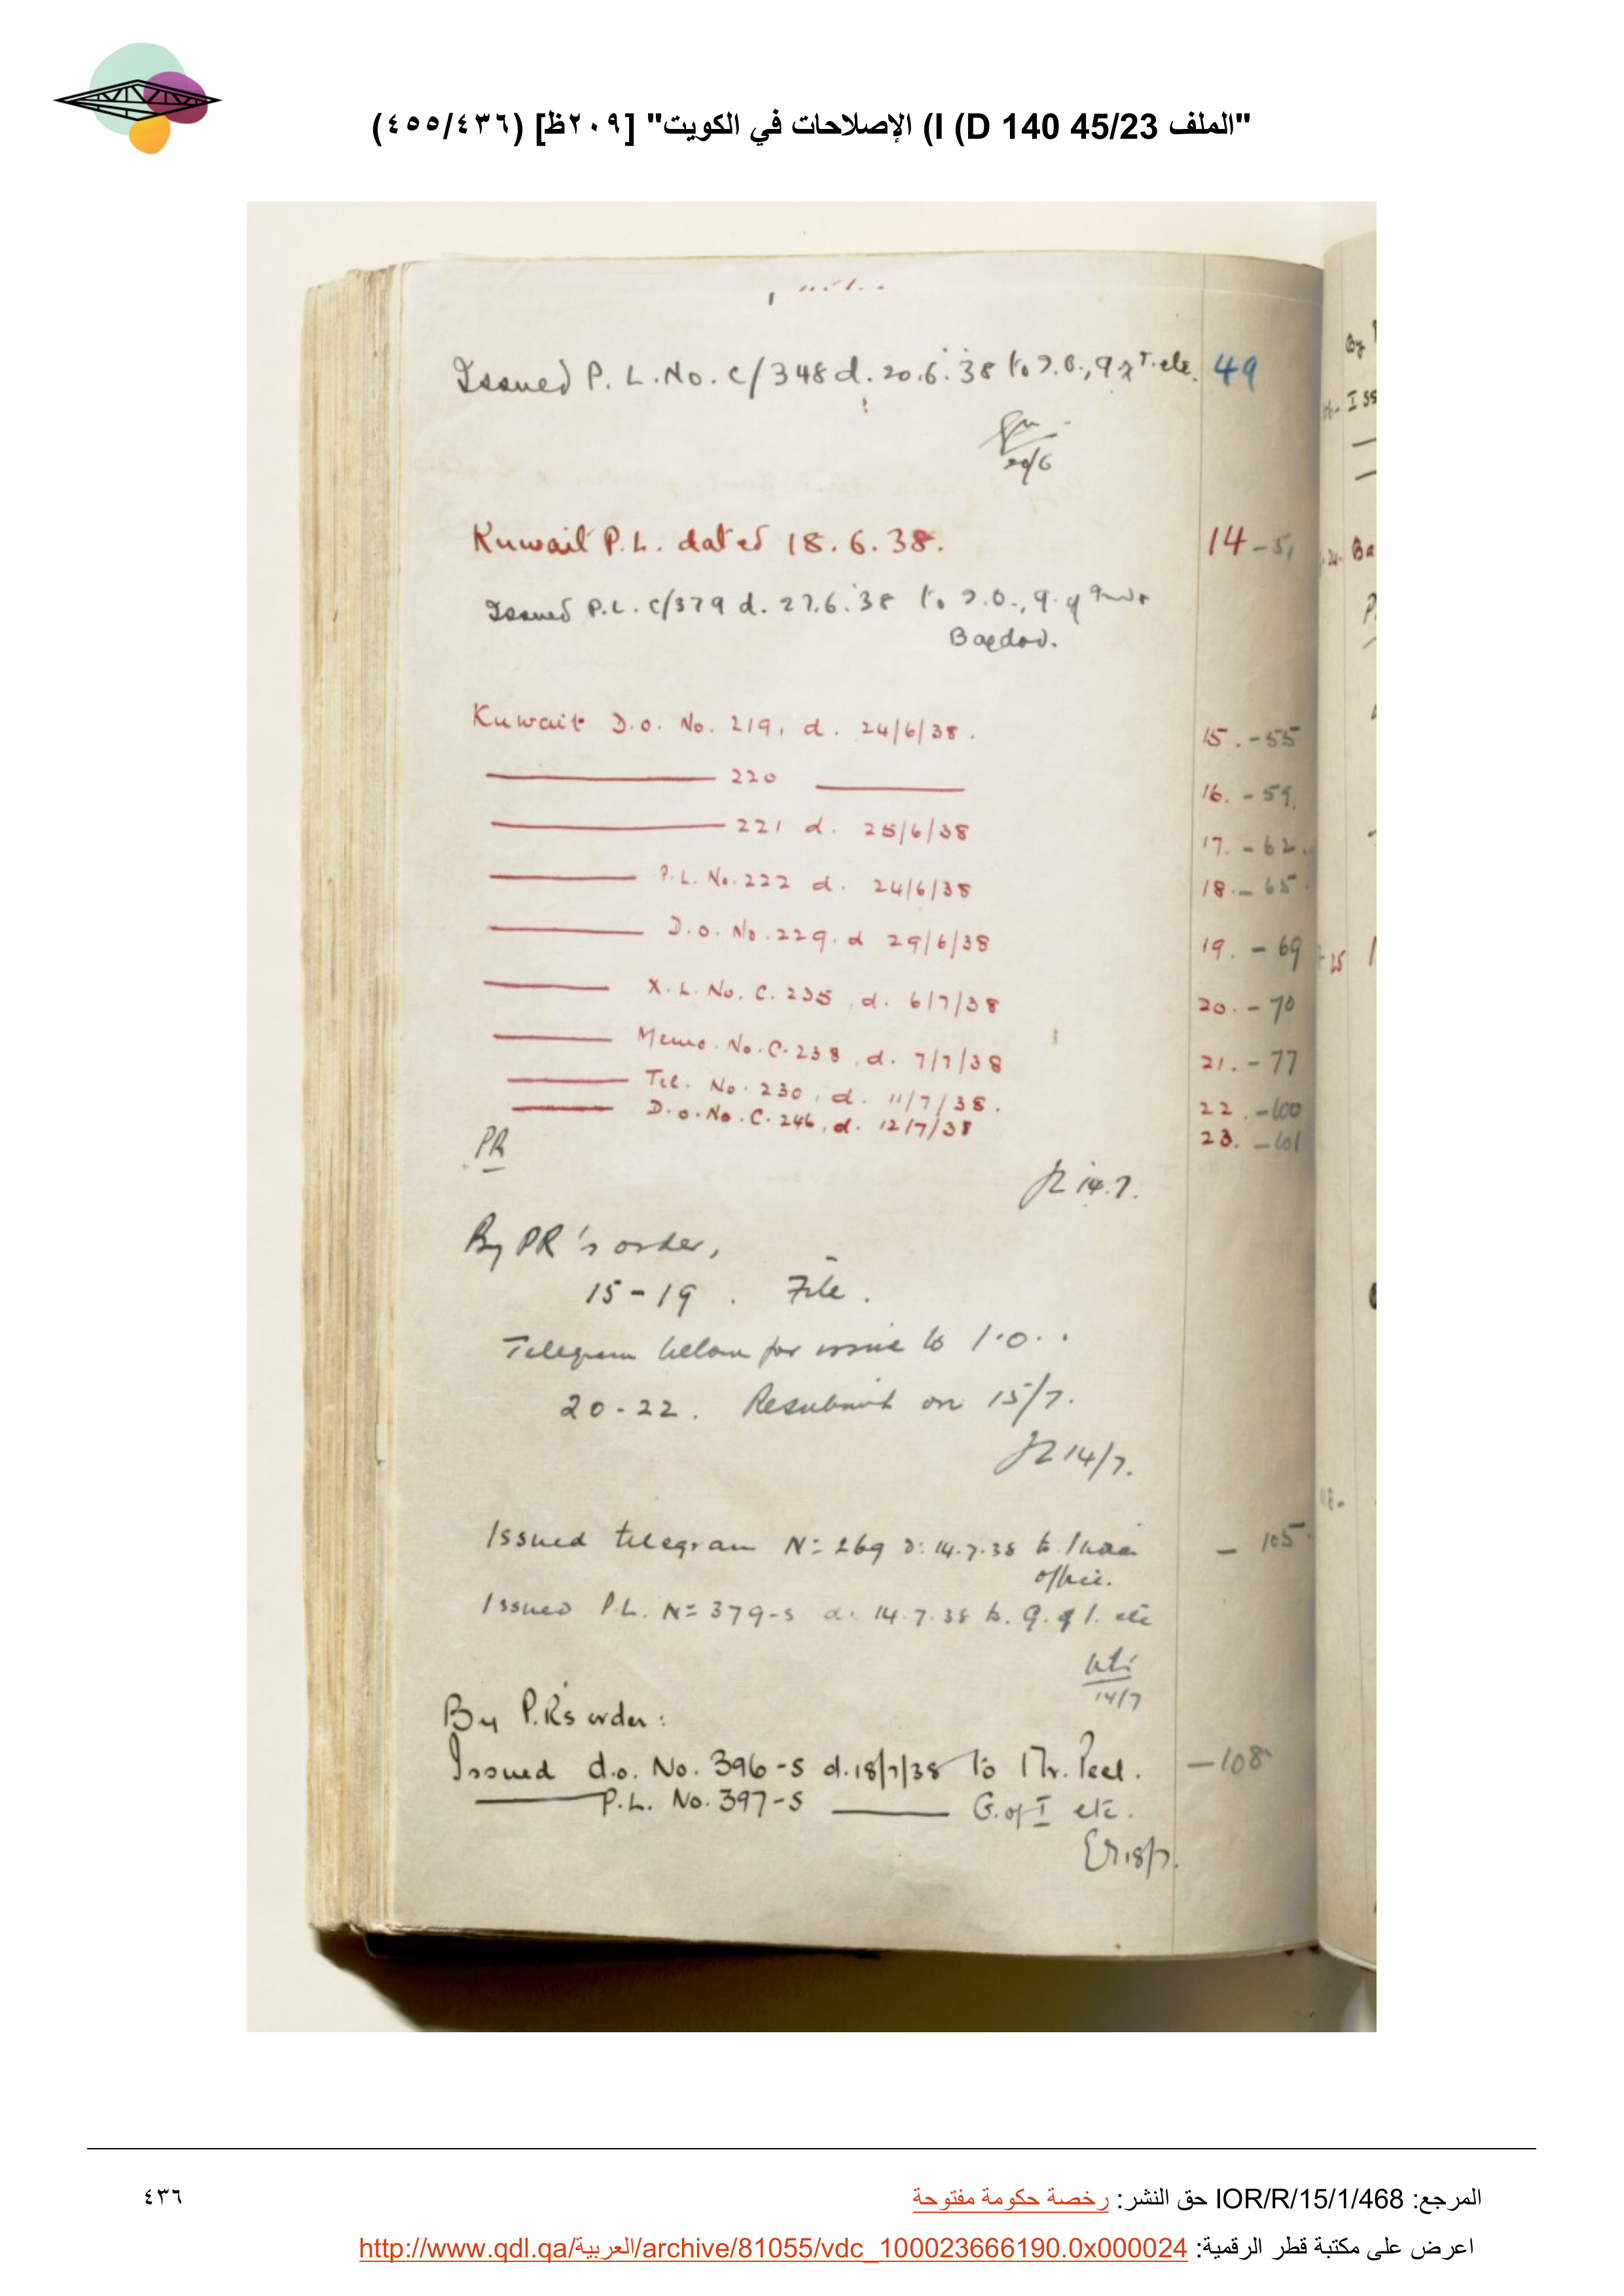 "الملف 45/23 140 I (D) الإصلاحات في الكويت" [٢٠٩ظ] (٤٣٦/٤٥٥)
Issued P. L. No. C/348 d. 20.6.38 to I.O., G of I. etc. 49
20/6
Kuwait P.L. dated 18.6.38. 14 - 51
Issued P.L. C/379 d. 27.6.38 to I.O., G. of
Bagdad.
Kuwait D.o. No. 219, d. 24/6/38. 15. - 55
220 16. - 59.
221 d. 25/6/38 17. - 62.
P.L. No. 222 d. 24/6/38 18. - 65.
D.o. No. 229. d 29/6/38 19. - 69
X.L. No. C. 235, d. 6/7/38 20. - 70
Memo. No. C. 238, d. 7/7/38 21. - 77
Tel. No. 230, d. 11/7/38. 22. - 100
D.o. No. C. 246, d. 12/7/38 23. - 101
PR
14.7.
By PR's order,
15-19. File.
Telegram below for issue to I.O..
20-22. Resubmit on 15/7.
14/7.
Issued telegram No 269 d: 14.7.38 to India - 105.
office.
Issued P.L. No 379-S d. 14.7.38 to G. of I. etc
14/7
By P.R's order:
Issued d.o. No. 396-S d. 18/7/38 to Mr. Peel. - 108
P.L. No. 397-S G. of I etc.
18/7.
المرجع: IOR/R/15/1/468 حق النشر: رخصة حكومة مفتوحة
٤٣٦
اعرض على مكتبة قطر الرقمية: http://www.qdl.qa/العربية/archive/81055/vdc_100023666190.0x000024